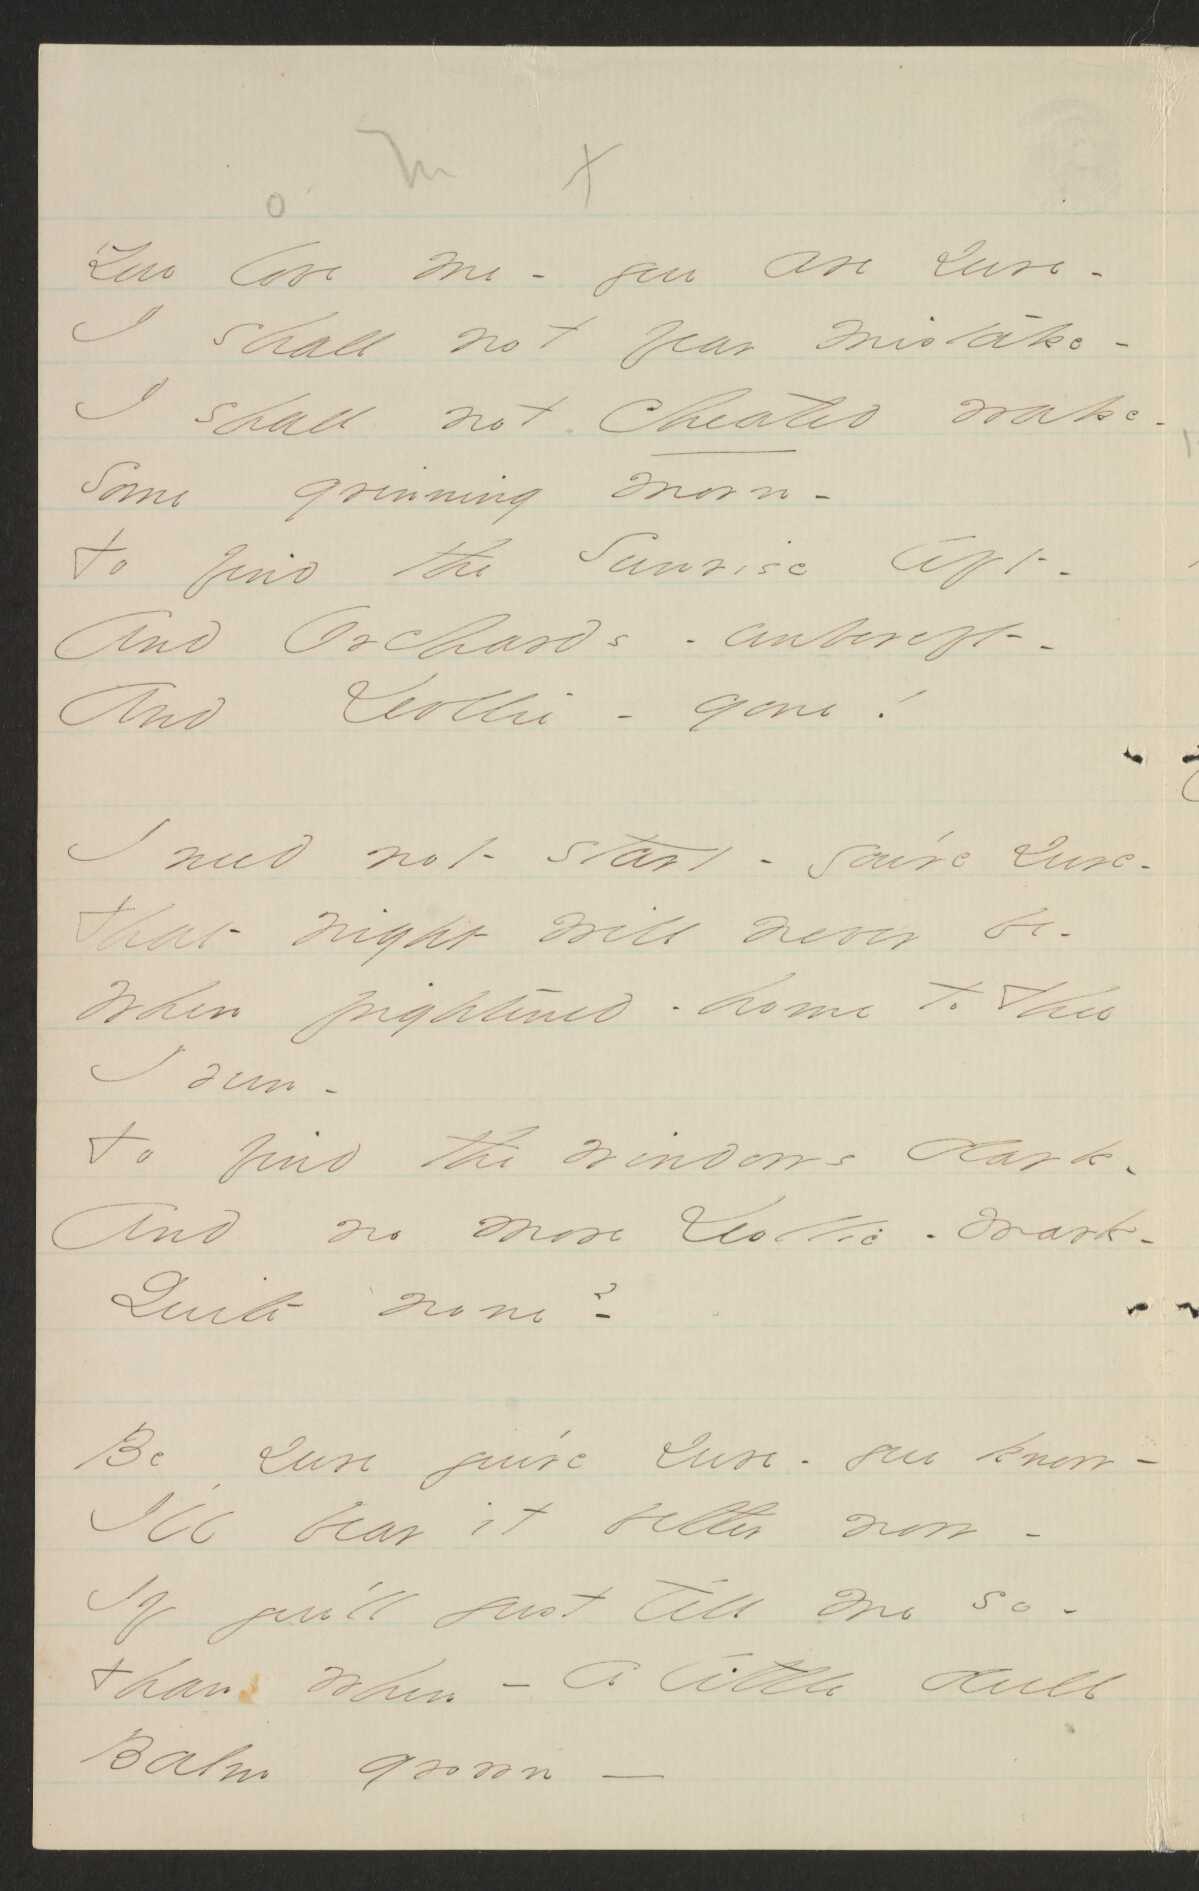 o m x
You love me - you are sure -
I shall not fear mistake -
I shall not cheated wake -
Some grinning morn -
To find the Sunrise left -
And Orchards - unbereft -
And Dollie - gone!
I need not start - you're sure -
That night will never be -
When frightened - home to Thee
I run -
To find the windows dark -
And no more Dollie - mark -
Quite none?
Be sure you're sure - you know -
I'll bear it better now -
If you'll just tell me so -
Than when - a little dull
Balm grown —